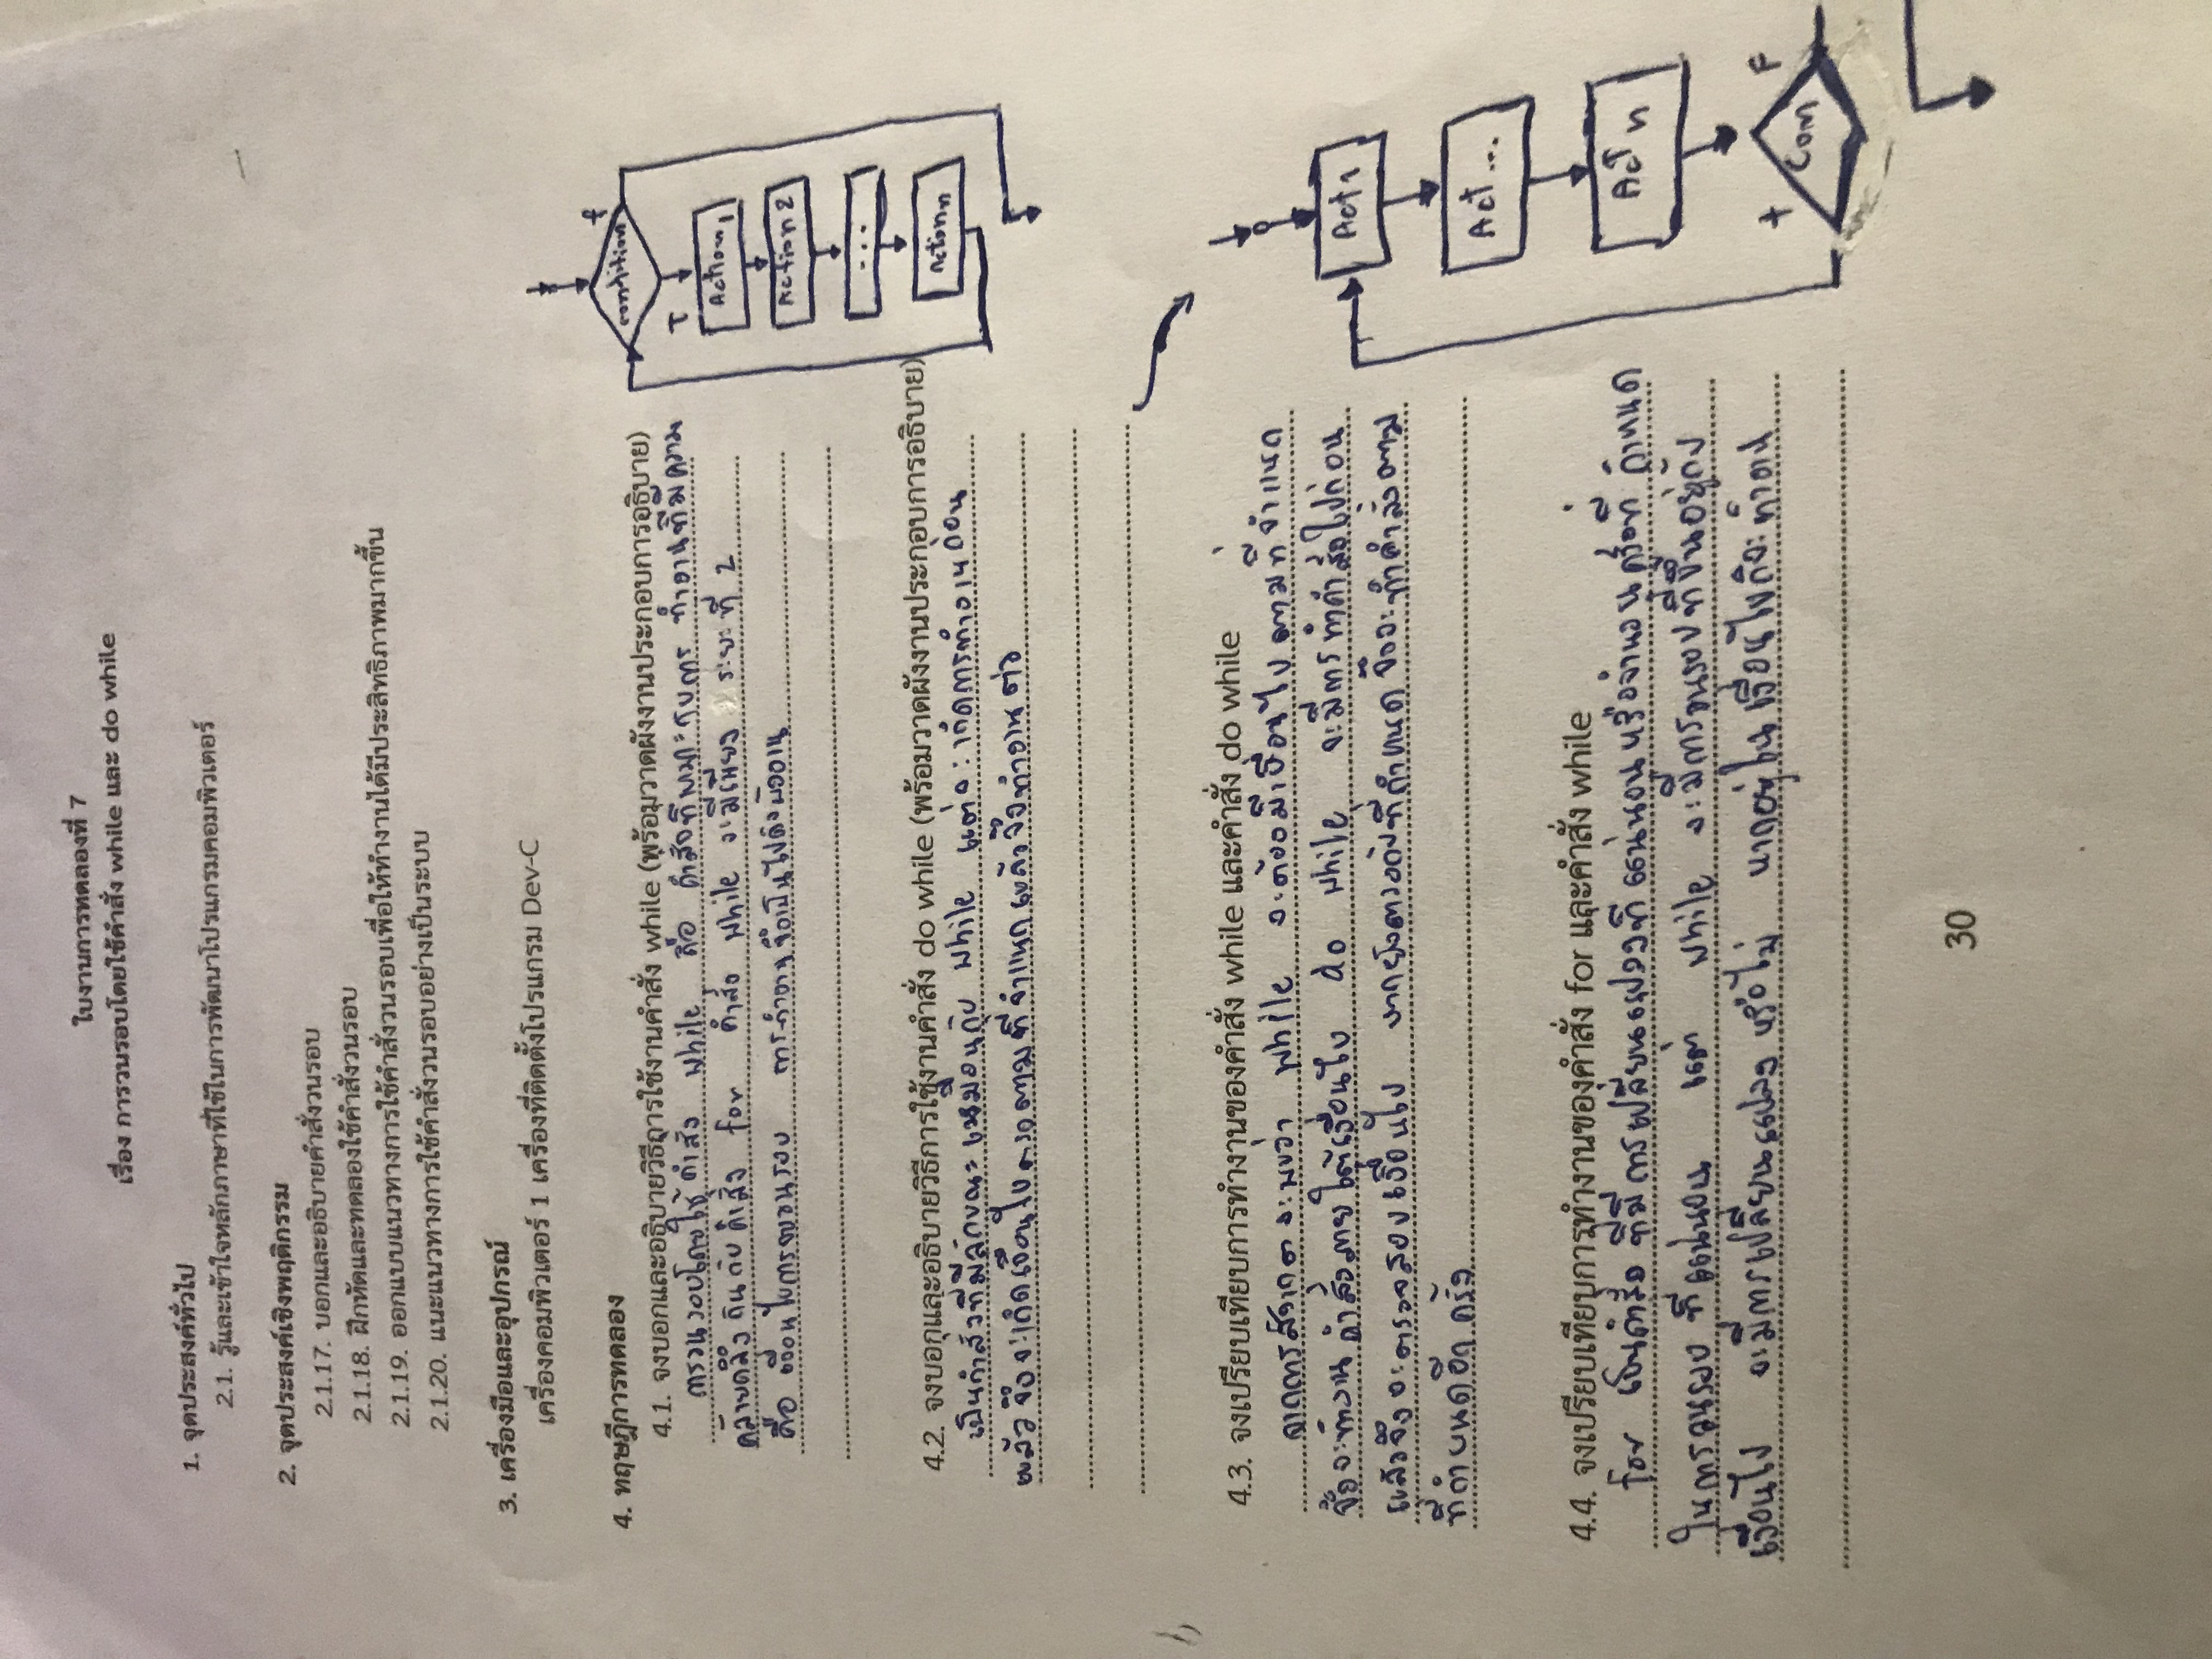 ใบงานการทดลองที่ 7
เรื่อง การวนรอบโดยใช้คำสั่ง while และ do while
1. จุดประสงค์ทั่วไป
2.1. รู้และเข้าใจหลักภาษาที่ใช้ในการพัฒนาโปรแกรมคอมพิวเตอร์
2. จุดประสงค์เชิงพฤติกรรม
2.1.17. บอกและอธิบายคำสั่งวนรอบ
2.1.18. ฝึกหัดและทดลองใช้คำสั่งวนรอบ
2.1.19. ออกแบบแนวทางการใช้คำสั่งวนรอบเพื่อให้ทำงานได้มีประสิทธิภาพมากขึ้น
2.1.20. แนะแนวทางการใช้คำสั่งวนรอบอย่างเป็นระบบ
3. เครื่องมือและอุปกรณ์
เครื่องคอมพิวเตอร์ 1 เครื่องที่ติดตั้งโปรแกรม Dev-C
4. ทฤษฎีการทดลอง
4.1. จงบอกและอธิบายวิธีการใช้งานคำสั่ง while (พร้อมวาดผังงานประกอบการอธิบาย)
การวนรอบโดยใช้คำสั่ง while คือ คำสั่งที่เหมาะกับการ ทำงานที่มีความ
คล้ายคลึงกันกับคำสั่ง for คำสั่ง while จะมีเพียง ระยะที่ 2
คือ เงื่อนไขการวนรอบ การทำงานจึงเป็นไปดังผังงาน
f
condition
T
Action 1
Action 2
...
Action n
4.2. จงบอกและอธิบายวิธีการใช้งานคำสั่ง do while (พร้อมวาดผังงานประกอบการอธิบาย)
เป็นคำสั่งที่มีลักษณะเหมือนกับ while แต่จะเกิดการทำงานก่อน
แล้วจึงจะเกิดเงื่อนไขตรงตามที่จำแนกแล้วจึงทำงานต่อ
4.3. จงเปรียบเทียบการทำงานของคำสั่ง while และคำสั่ง do while
จากการสังเกตจะพบว่า while จะต้องมีเงื่อนไขตามที่จำแนก
จึงจะทำงานคำสั่งภายใต้เงื่อนไข do while จะมีการทำคำสั่งไปก่อน
แล้วจึงจะตรวจสอบเงื่อนไข หากยังตรงกับที่กำหนดจึงจะทำคำสั่งตาม
ที่กำหนดอีกครั้ง
Act 1
Act ...
Act n
t
F
Com
4.4. จงเปรียบเทียบการทำงานของคำสั่ง for และคำสั่ง while
for เป็นคำสั่งที่มีการเปลี่ยนแปลงที่แน่นอนหรือจำนวนครั้งที่กำหนด
ในการวนรอบที่แน่นอน แต่ while จะมีการวนรอบที่ขึ้นอยู่กับ
เงื่อนไข จะมีการเปลี่ยนแปลงหรือไม่ หากอยู่ในเงื่อนไขก็จะทำงาน
30